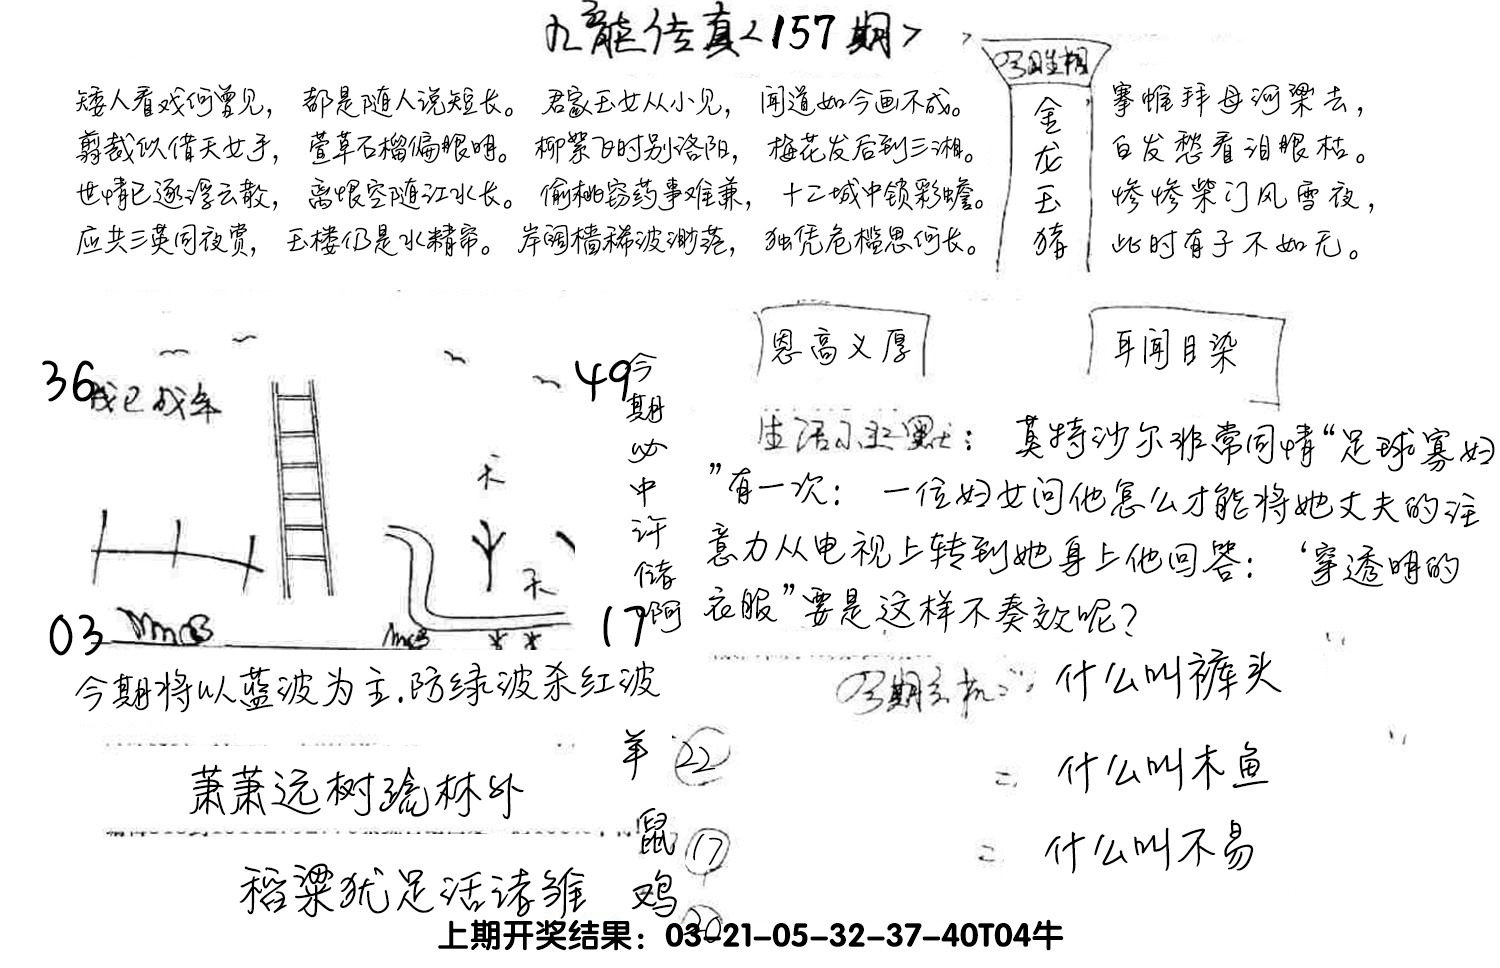 九龙传真<157期>
矮人看戏何曾见，都是随人说短长。君家玉女从小见，闻道如今画不成。
剪裁似借天女手，萱草石榴偏眼明。柳絮飞时别洛阳，梅花发后到三湘。
世情已逐浮云散，离恨空随江水长。偷桃窃药事难兼，十二城中锁彩蟾。
应共三英同夜赏，玉楼仍是水精帘。岸阔樯稀波渺茫，独凭危槛思何长。
金龙玉猪
搴帷拜母河梁去，
白发愁看泪眼枯。
惨惨柴门风雪夜，
此时有子不如无。
恩高义厚
耳闻目染
36
49
我已成年
天
天
03
17
今期必中许储啊
生活幽默：莫特沙尔非常同情“足球寡妇
”有一次：一位妇女问他怎么才能将她丈夫的注
意力从电视上转到她身上他回答：‘穿透明的
衣服”要是这样不奏效呢？
今期将以蓝波为主.防绿波杀红波
今期玄机：什么叫裤头
= 什么叫木鱼
= 什么叫不易
萧萧远树疏林外
稻粱犹足活诸雏
羊 22
鼠 17
鸡 20
上期开奖结果：03-21-05-32-37-40T04牛